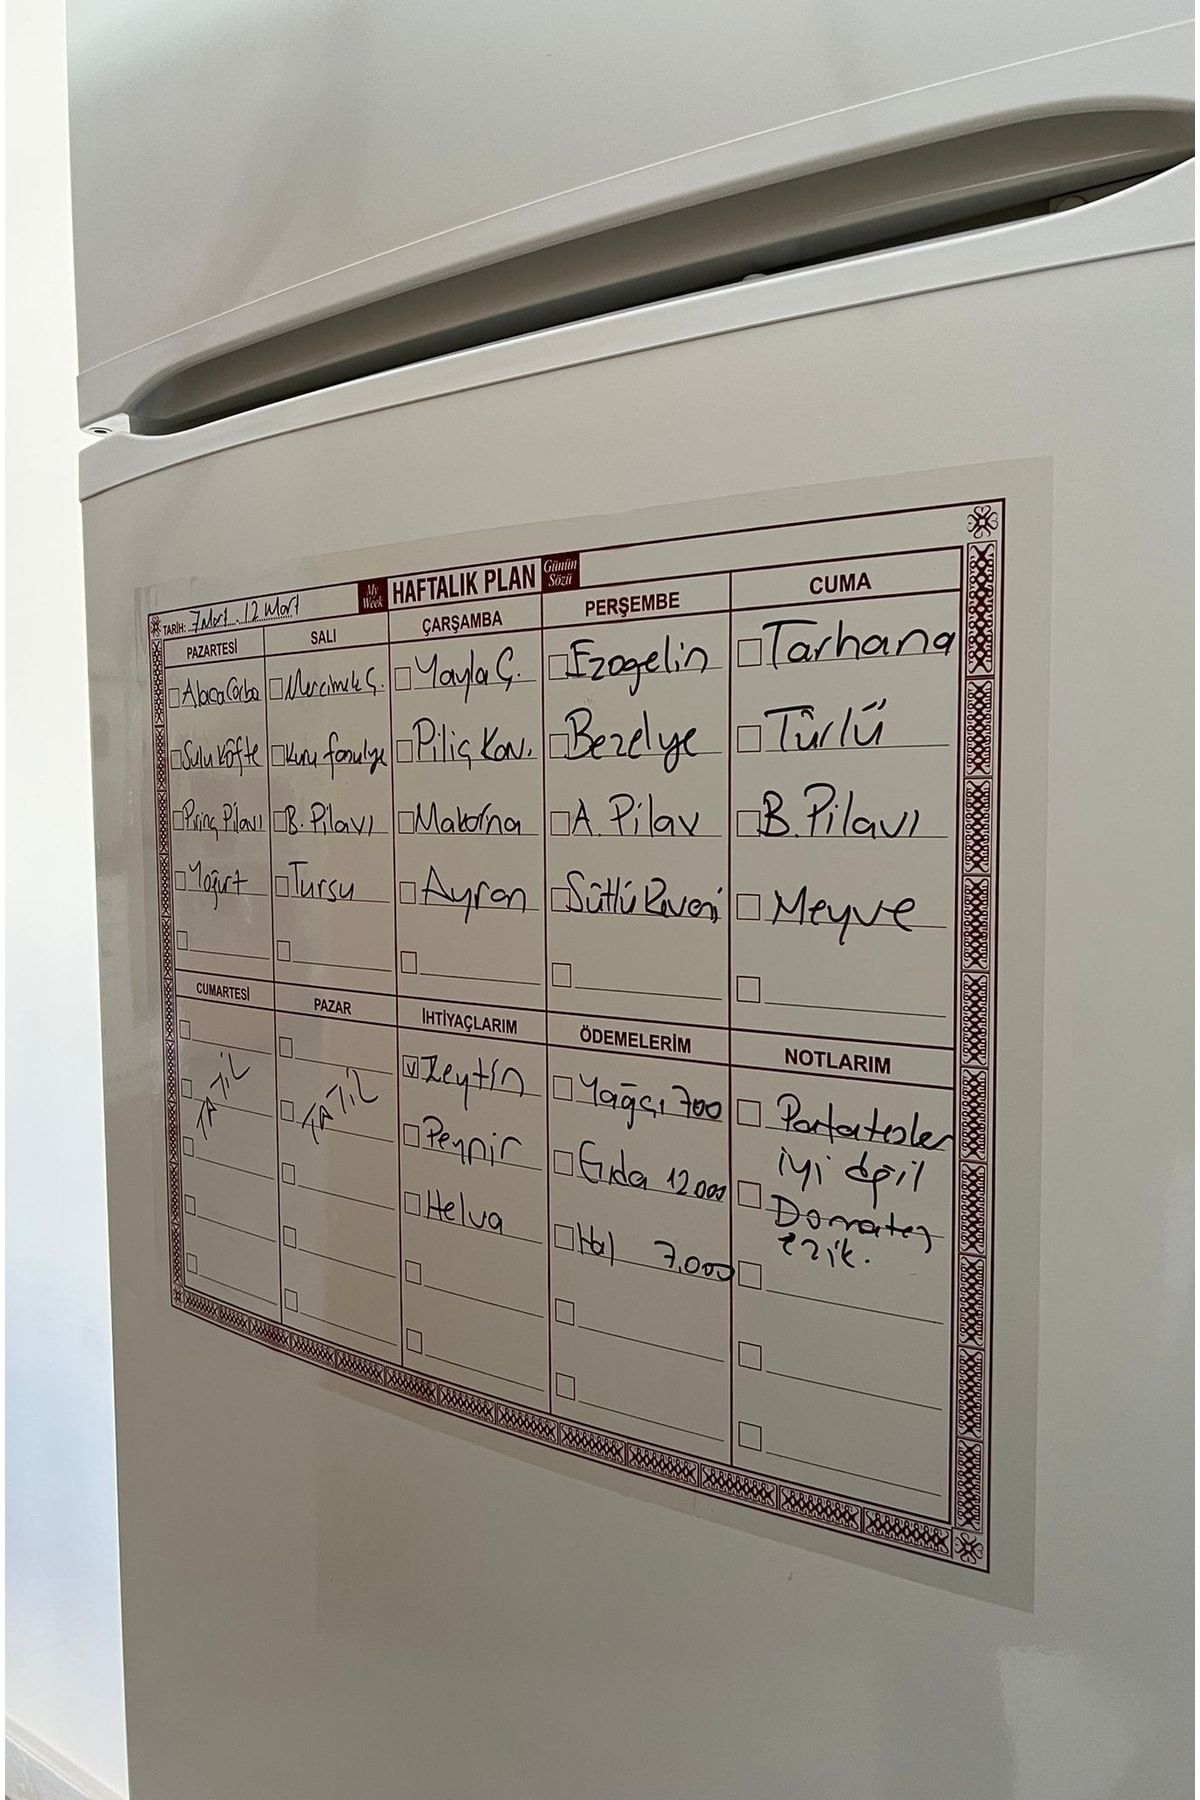 My Week
HAFTALIK PLAN
Günün Sözü
TARİH: 7 Mart . 12 Mart
PAZARTESİ
Alaca Çorba
Sulu Köfte
Pirinç Pilavı
Yoğurt
SALI
Mercimek Ç.
Kuru fasulye
B. Pilavı
Turşu
ÇARŞAMBA
Yayla Ç.
Piliç Kav.
Makarna
Ayran
PERŞEMBE
Ezogelin
Bezelye
A. Pilav
Sütlü
CUMA
Tarhana
Türlü
B. Pilavı
Meyve
CUMARTESİ
TATİL
PAZAR
TATİL
İHTİYAÇLARIM
Zeytin
Peynir
Helva
ÖDEMELERİM
Yağcı 700
Gıda 12.000
Hal 7.000
NOTLARIM
Patatesler
iyi değil
Domates
ezik.